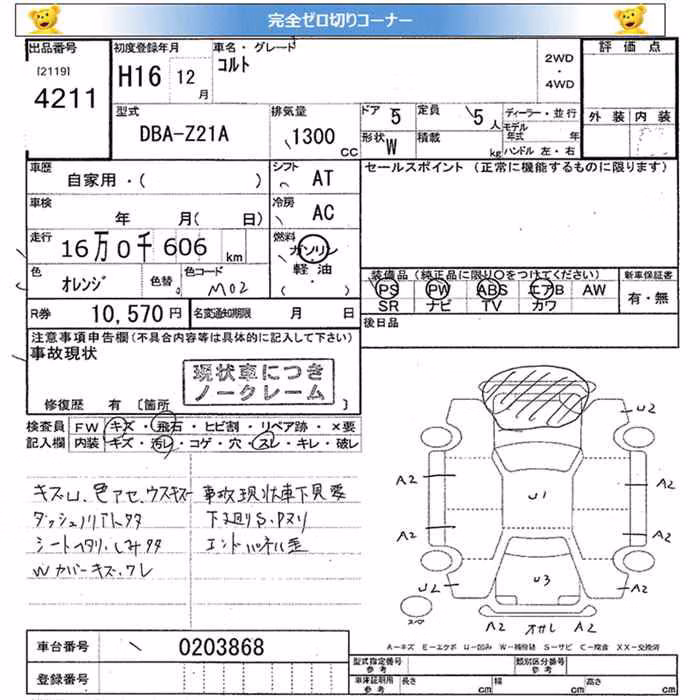 完全ゼロ切りコーナー
出品番号 初度登録年月 車名・グレード 評価点
[2119] コルト 2WD
4211 H16 12月 ・
4WD
型式 排気量 ドア 5 定員 5人 ディーラー・並行 外装 内装
DBA-Z21A 1300 CC 形状 W 積載 kg モデル年式 年
ハンドル 左・右
車歴 シフト セールスポイント (正常に機能するものに限ります)
自家用・( ) AT
車検 冷房
年 月( 日) AC
走行 燃料
16万0千606 km ガソリン
色 色替 色コード 軽油
オレンジ M02 ( )
装備品 (純正品に限り○をつけてください) 新車保証書
PS PW ABS エアB AW 有・無
SR ナビ TV カワ
R券 10,570円 名変通知期限 月 日
後日品
注意事項申告欄(不具合内容等は具体的に記入して下さい)
事故現状
現状車につき
ノークレーム
修復歴 有 [箇所 ]
検査員 FW キズ・飛石・ヒビ割・リペア跡・×要
記入欄 内装 キズ・汚レ・コゲ・穴・スレ・キレ・破レ
キズU、色アセ、ウスキズ 事故現状車下見要
下廻りS・Pヌリ
エンドパネル歪
Wカバーキズ、ワレ
U2
A2 A2
U1
A2 A2
U2 U3 A2
A2 A2
A-キズ E-エクボ U-凹み W-補修跡 S-サビ C-腐食 XX-交換済
車台番号 0203868
登録番号
型式指定番号 参考 類別区分番号 参考
車庫証明用 参考 長さ cm 幅 cm 高さ cm